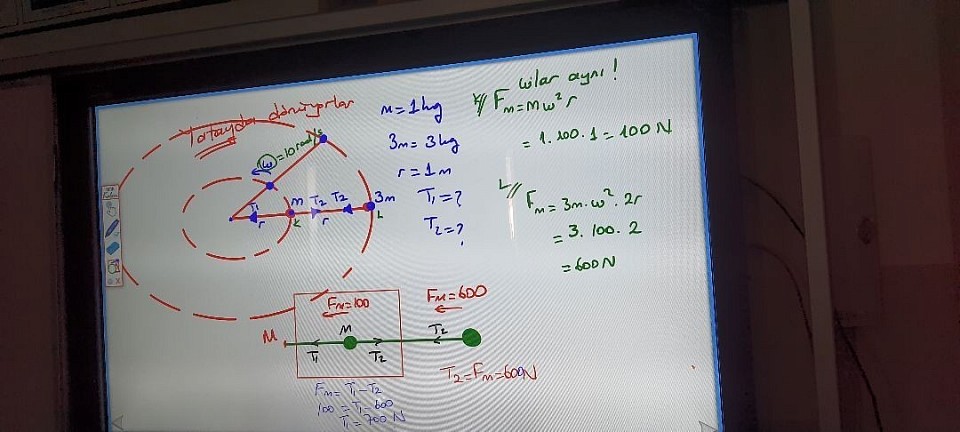 Yatayda dönüyorlar
ω=10rad/s
T₁
r
m
K
T₂
T₂
r
3m
L
m=1kg
3m=3kg
r=1m
T₁=?
T₂=?
w'lar aynı!
K// Fm=mω²r
=1.100.1=100N
L// Fm=3m.ω².2r
=3.100.2
=600N
Fm=100
Fm=600
M
T₁
M
T₂
T₂
T₂=Fm=600N
Fm=T₁-T₂
100=T₁-600
T₁=700N